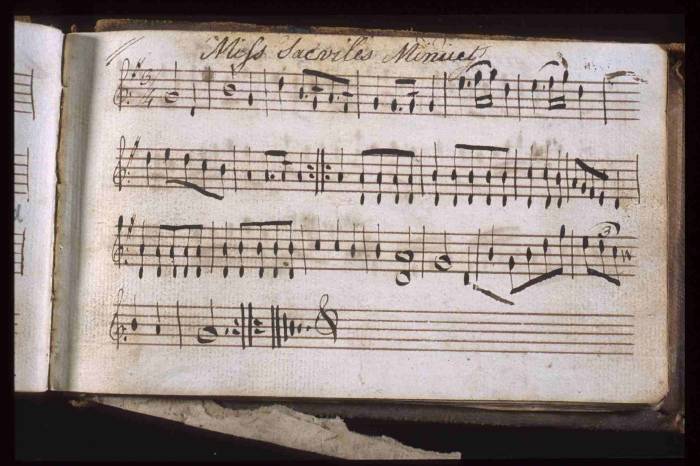 Miss Sacviles Minuet
3
4
3